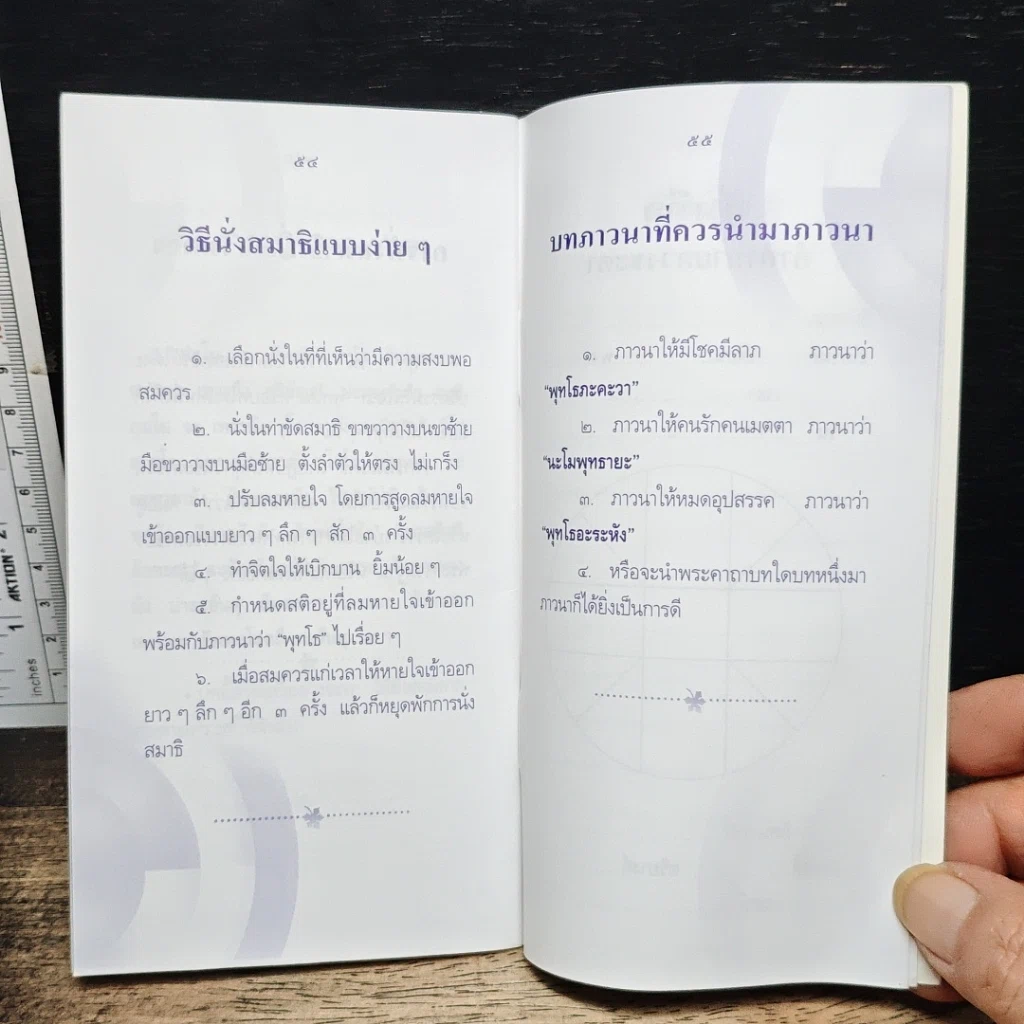 ๕๔
วิธีนั่งสมาธิแบบง่าย ๆ
๑. เลือกนั่งในที่ที่เห็นว่ามีความสงบพอ
สมควร
๒. นั่งในท่าขัดสมาธิ ขาขวาวางบนขาซ้าย
มือขวาวางบนมือซ้าย ตั้งลำตัวให้ตรง ไม่เกร็ง
๓. ปรับลมหายใจ โดยการสูดลมหายใจ
เข้าออกแบบยาว ๆ ลึก ๆ สัก ๓ ครั้ง
๔. ทำจิตใจให้เบิกบาน ยิ้มน้อย ๆ
๕. กำหนดสติอยู่ที่ลมหายใจเข้าออก
พร้อมกับภาวนาว่า "พุทโธ" ไปเรื่อย ๆ
๖. เมื่อสมควรแก่เวลาให้หายใจเข้าออก
ยาว ๆ ลึก ๆ อีก ๓ ครั้ง แล้วก็หยุดพักการนั่ง
สมาธิ
๕๕
บทภาวนาที่ควรนำมาภาวนา
๑. ภาวนาให้มีโชคมีลาภ ภาวนาว่า
"พุทโธภะคะวา"
๒. ภาวนาให้คนรักคนเมตตา ภาวนาว่า
"นะโมพุทธายะ"
๓. ภาวนาให้หมดอุปสรรค ภาวนาว่า
"พุทโธอะระหัง"
๔. หรือจะนำพระคาถาบทใดบทหนึ่งมา
ภาวนาก็ได้ยิ่งเป็นการดี
AKTION
inches
1 2 3 4 5 6 7 8 9